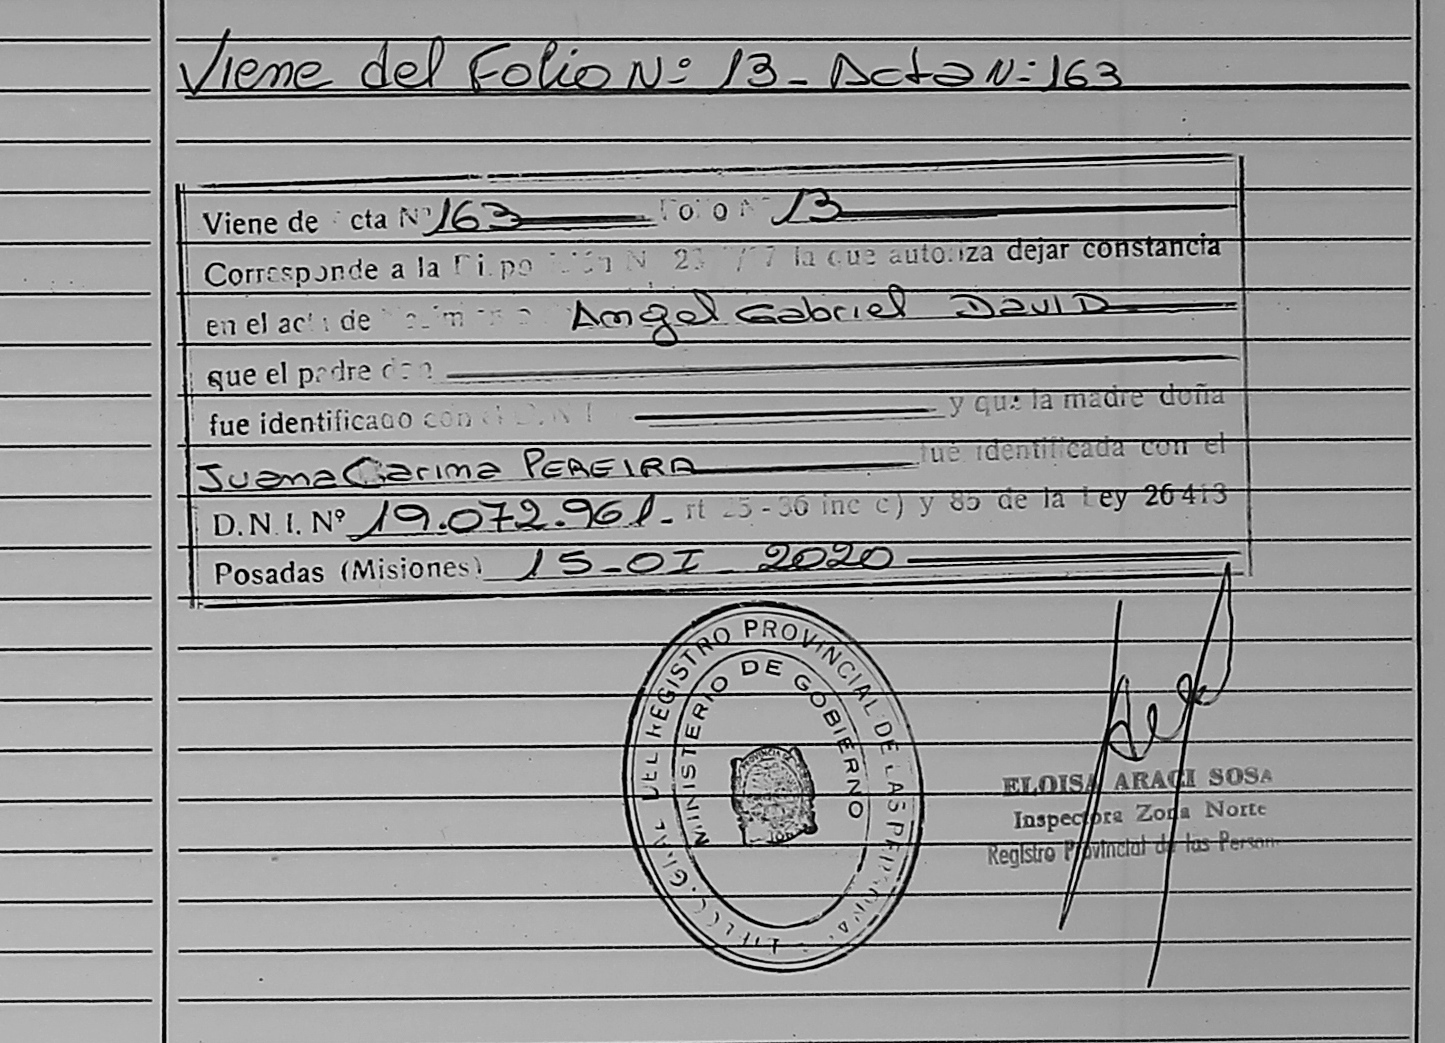 Viene del Folio Nº 13 - Acta Nº 163
Viene de cta Nº 163 13
Corresponde a la la que autoriza dejar constancia
en el acta de Angel Gabriel DAVID
que el padre don
fue identificado con el D.N.I. y que la madre doña
Juana Carina PEREIRA fue identificada con el
D.N.I. Nº 19.072.961 - rt 25-36 inc c) y 85 de la Ley 26413
Posadas (Misiones) 15-01-2020
REGISTRO PROVINCIAL DE LAS PERSONAS
MINISTERIO DE GOBIERNO
ELOISA ARACI SOSA
Inspectora Zona Norte
Registro Provincial de las Person